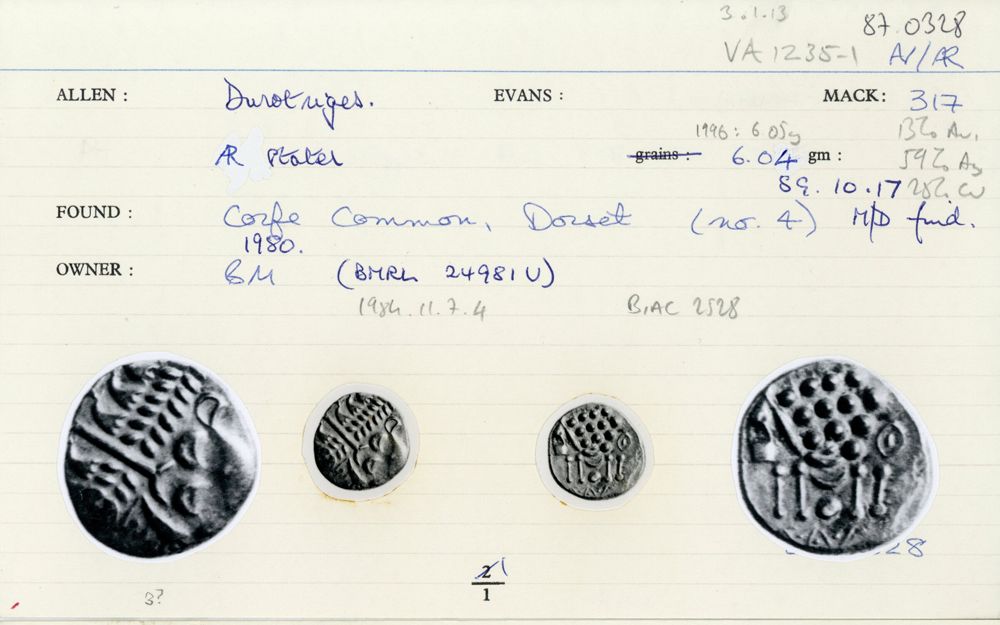 3.1.13 87.0328
VA 1235-1 AV/AR
ALLEN : Durotriges. EVANS : MACK: 317
1996: 6.05g 13% Au,
AR stater grains : 6.04 gm : 59% Ag
89.10.17 28% Cu
FOUND : Corfe Common, Dorset (no. 4) M/D find.
1980.
OWNER : BM (BMRL 24981U)
1984.11.7.4 BIAC 2528
28
2 1
1
3?